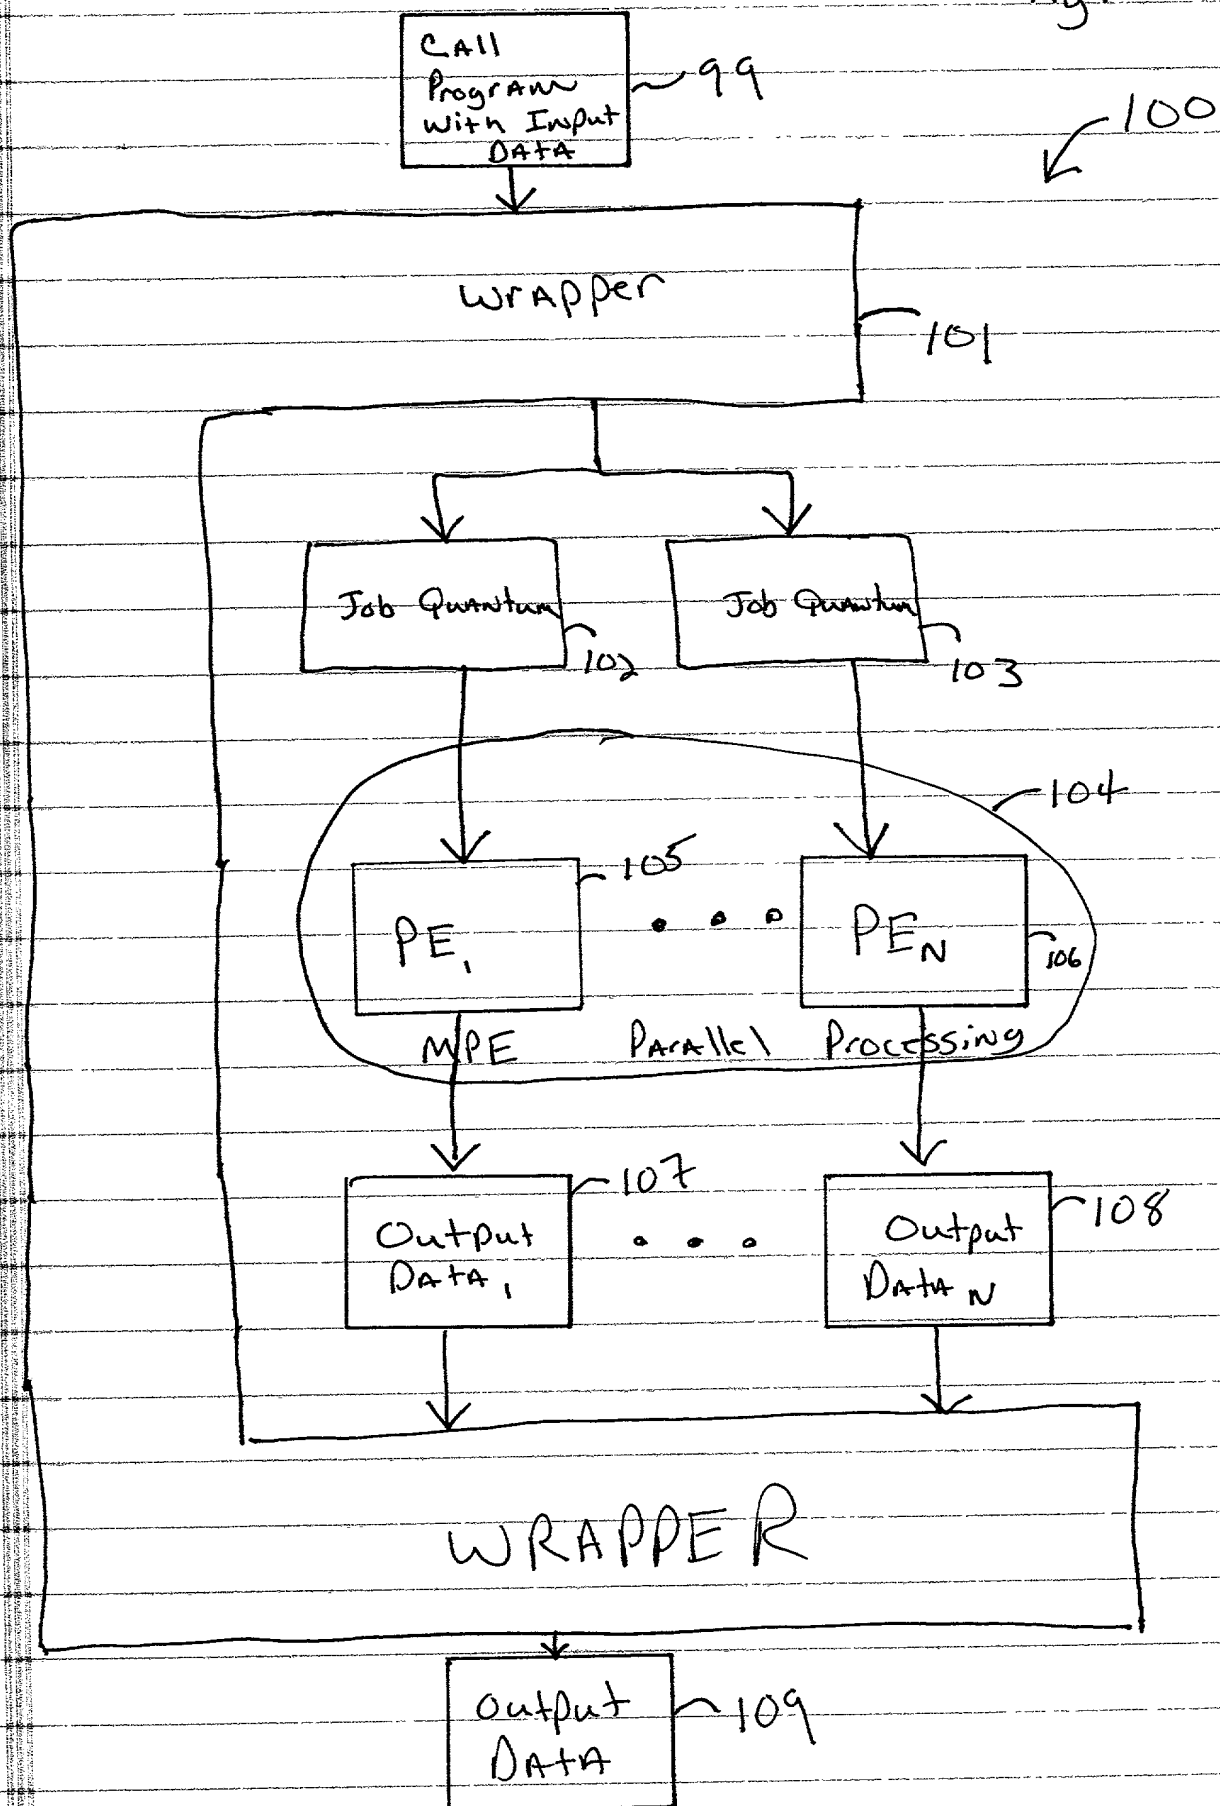 CAll
Program
with Input
DAtA
99
100
Wrapper
101
Job Quantum
102
Job Quantum
103
104
PE1
105
PEN
106
MPE Parallel Processing
Output
DAtA1
107
Output
DAtAN
108
WRAPPER
Output
DAtA
109